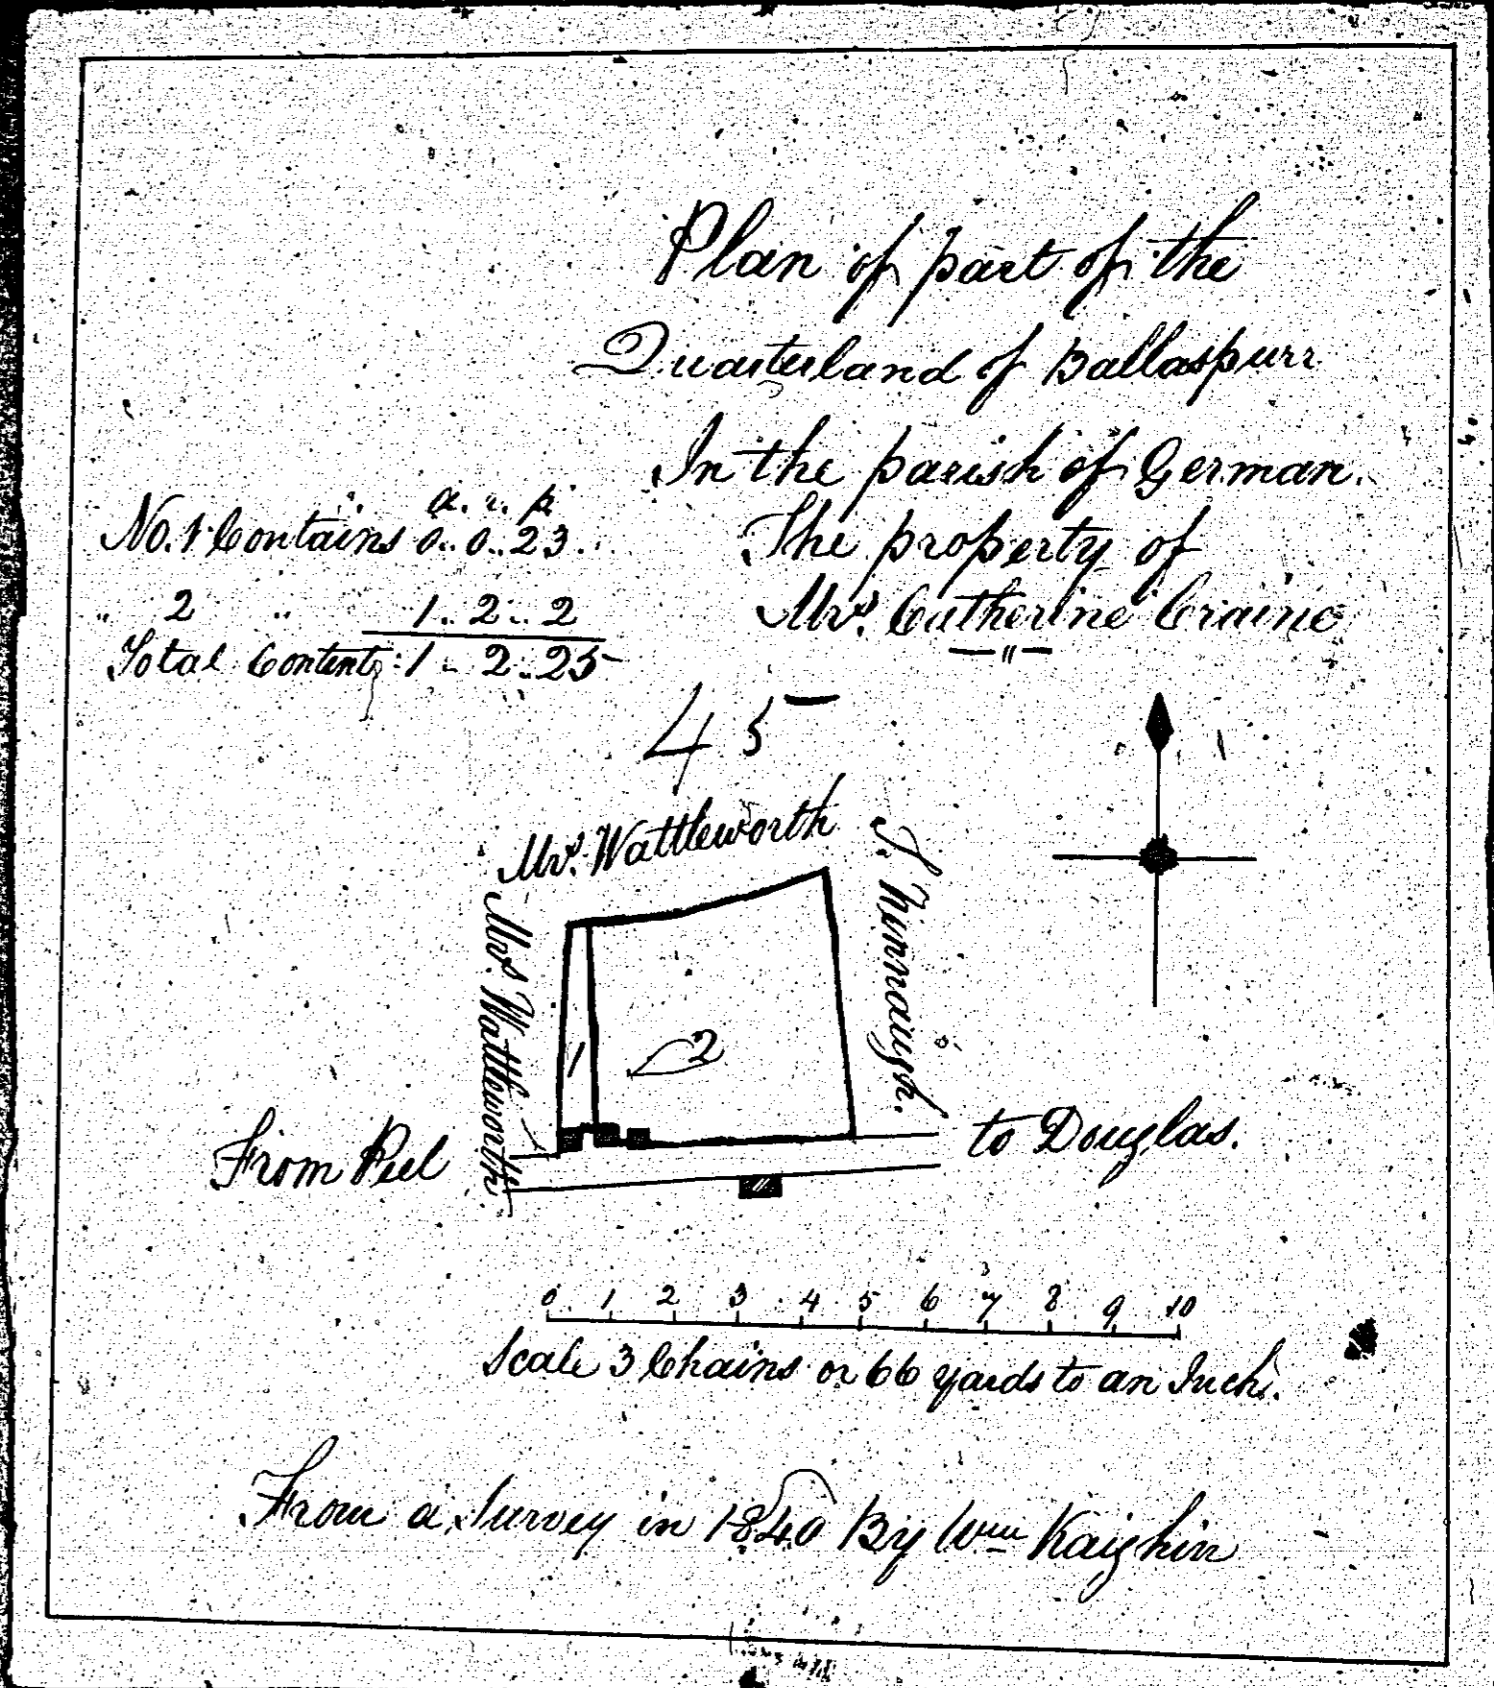 Plan of part of the
Quarterland of Ballaspurr
In the parish of German.
The property of
Mrs. Catherine Craine
a. r. p.
No. 1 Contains 0.. 0.. 23.
" 2 " 1.. 2.. 2
Total Contents: 1.. 2.. 25
45
Mrs. Wattleworth
Mrs. Wattleworth
J. Kinnaugh.
1
2
From Peel
to Douglas.
0 1 2 3 4 5 6 7 8 9 10
Scale 3 Chains or 66 yards to an Inch.
From a Survey in 1840 By Wm Kaighin